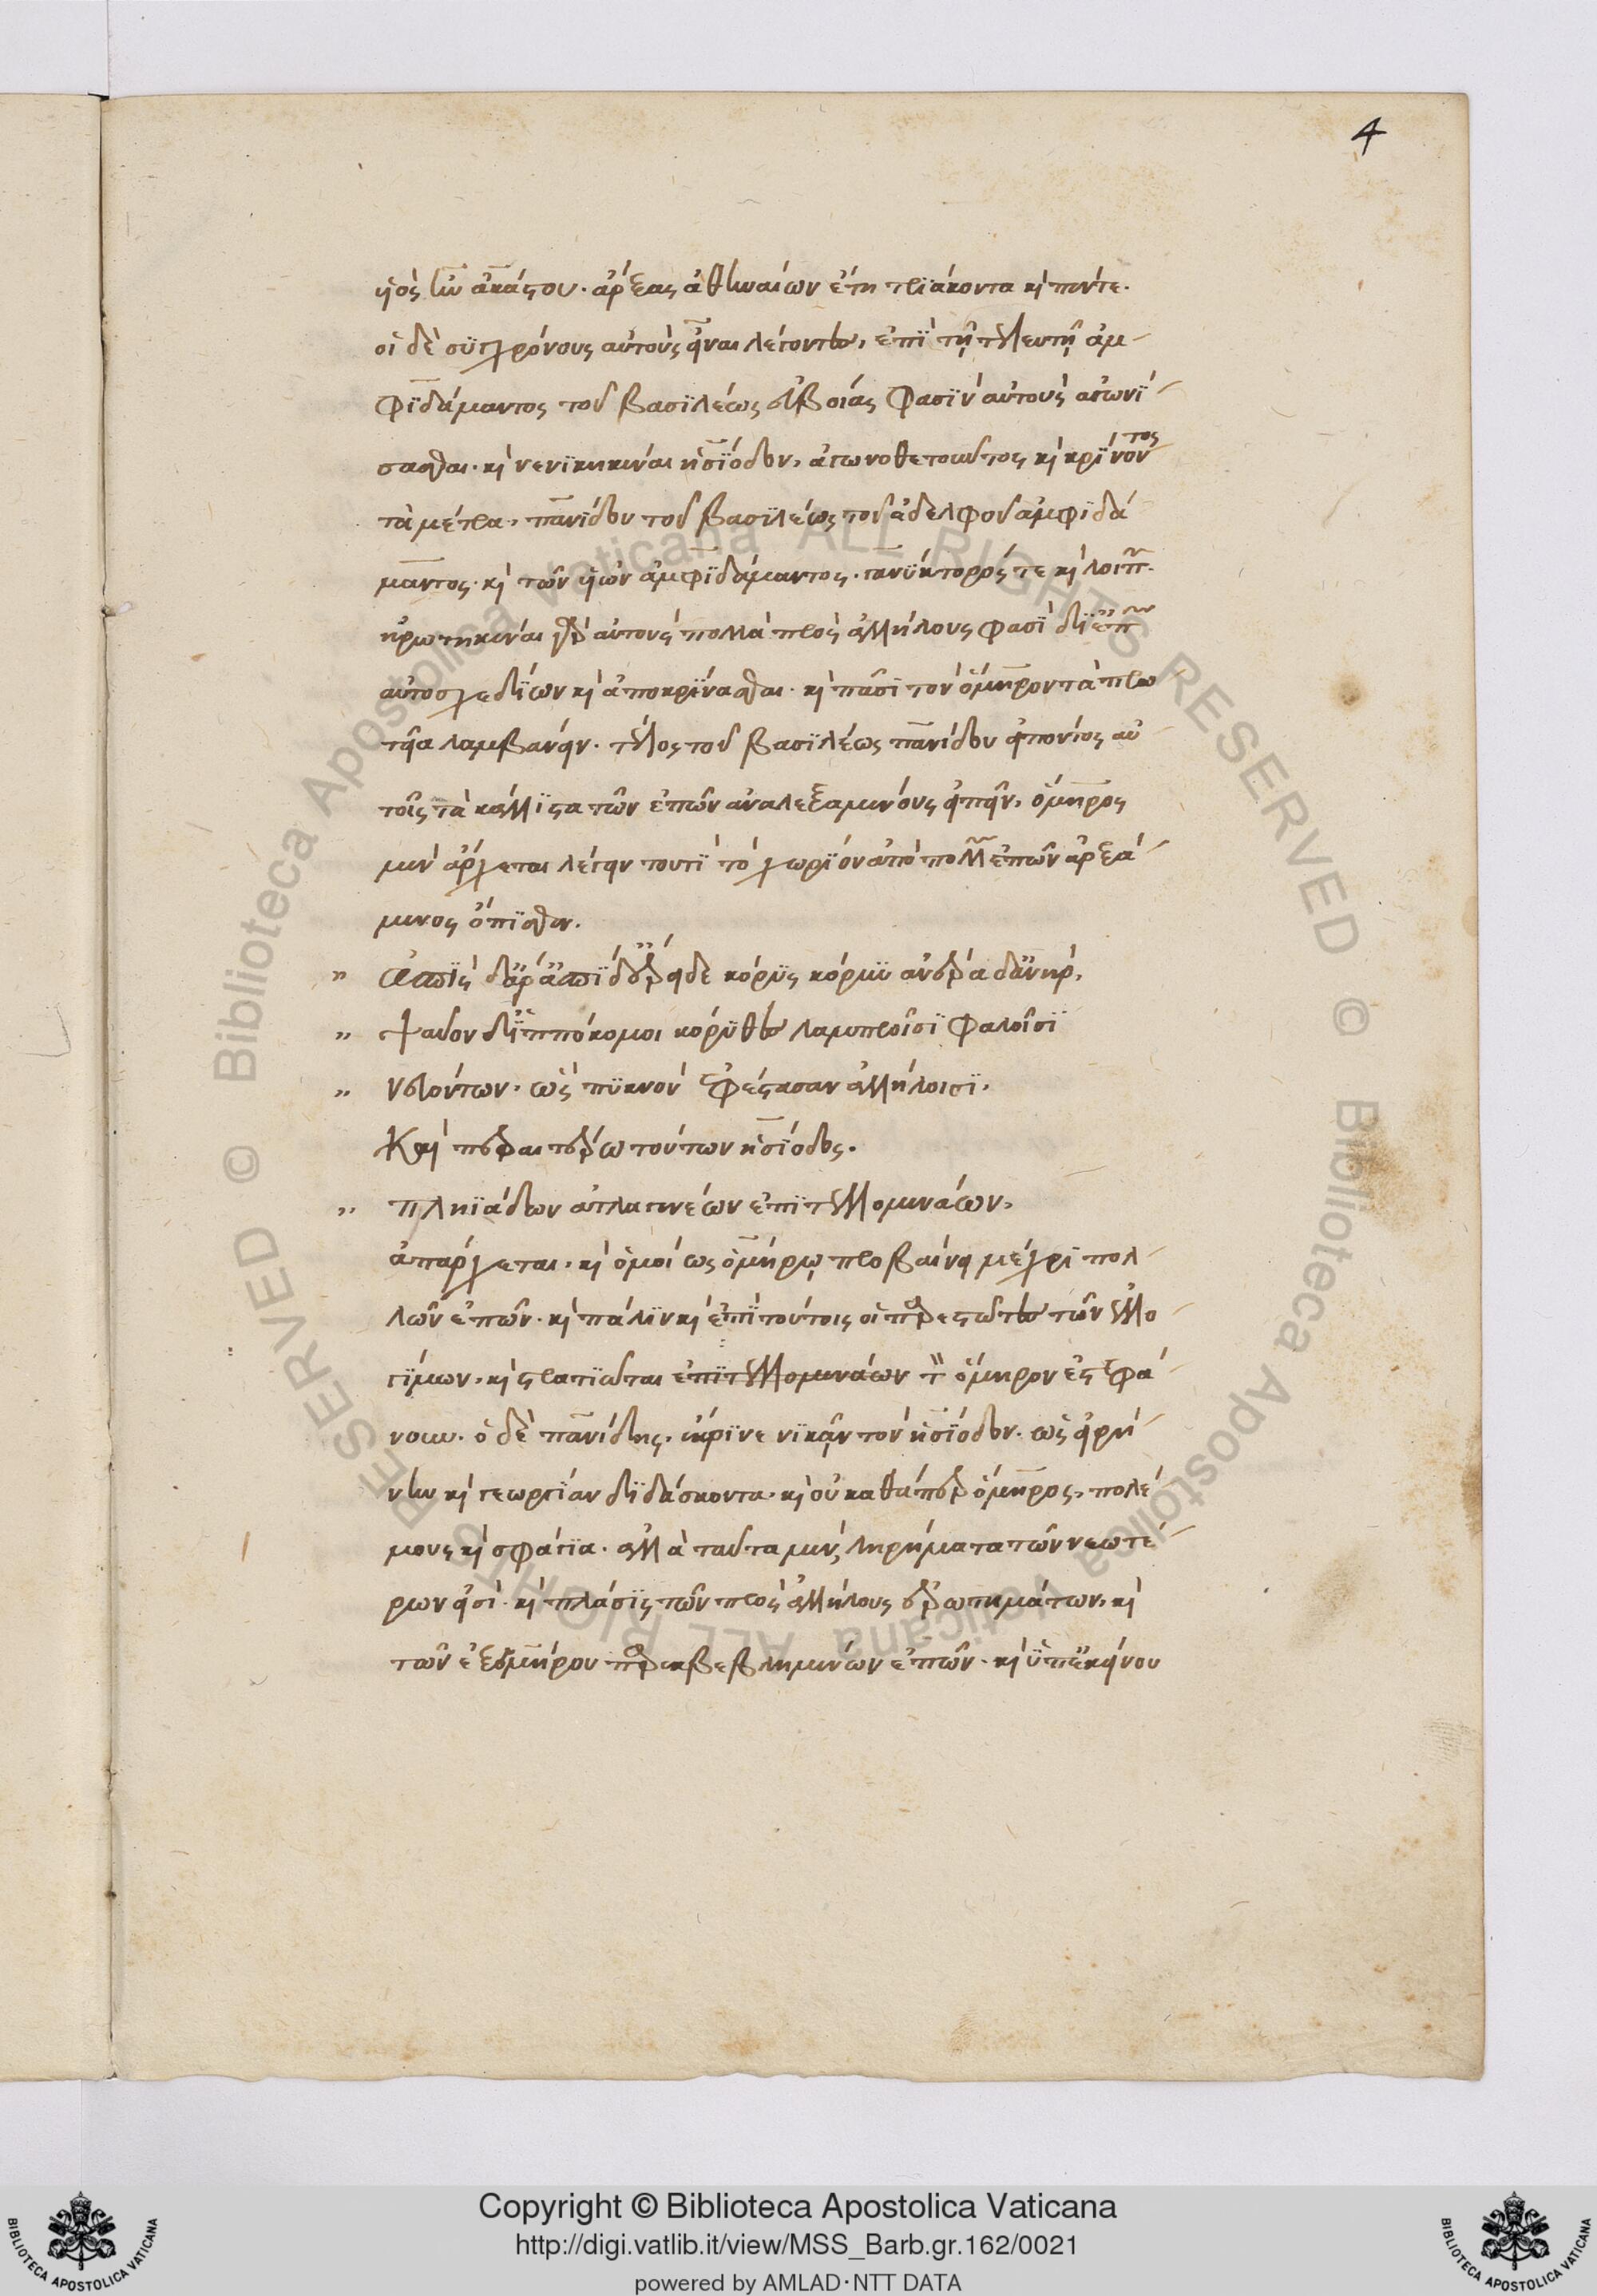 4
υἱὸς ἦν ἀκάστου. ἄρξας ἀθηναίων ἔτη τριάκοντα καὶ πέντε.
οἱ δὲ συγχρόνους αὐτοὺς εἶναι λέγοντες, ἐπὶ τῇ τελευτῇ ἀμ-
φιδάμαντος τοῦ βασιλέως εὐβοίας φασὶν αὐτοὺς ἀγωνί-
σασθαι. καὶ νενικηκέναι ἡσίοδον, ἀγωνοθετοῦντος καὶ κρίνοντος
τὰ μέτρα, πανίδου τοῦ βασιλέως τοῦ ἀδελφοῦ ἀμφιδά
μαντος. καὶ τῶν υἱῶν ἀμφιδάμαντος. γανύκτορός τε καὶ λοιπ.
ἠρωτηκέναι γὰρ αὐτοὺς πολλὰ πρὸς ἀλλήλους φασὶ δι' ἐπῶν
αὐτοσχεδίων καὶ ἀποκρίνασθαι. καὶ πᾶσι τὸν ὅμηρον τὰ πρω
τεῖα λαμβάνειν. τέλος τοῦ βασιλέως πανίδου εἰπόντος αὐ
τοῖς τὰ κάλλιστα τῶν ἐπῶν ἀναλεξαμένους εἰπεῖν, ὅμηρος
μὲν ἄρχεται λέγειν τουτὶ τὸ χωρίον ἀπὸ πολλῶν ἐπῶν ἀρξά-
μενος ὄπισθεν.
" ἀσπὶς δ' ἄρ' ἀσπίδ' ἔρειδε κόρυς κόρυν ἀνέρα δ' ἀνήρ,
" ψαῦον δ' ἱππόκομοι κόρυθες λαμπροῖσι φαλοῖσι
" νευόντων. ὡς πυκνοὶ ἐφέστασαν ἀλλήλοισι.
Καὶ περαιτέρω τούτων ἡσίοδος.
" πληϊάδων ἀτλαγενέων ἐπιτελλομενάων,
ἀπάρχεται. καὶ ὁμοίως ὁμήρῳ προβαίνει μέχρι πολ-
λῶν ἐπῶν. καὶ πάλιν καὶ ἐπὶ τούτοις οἱ παρεστῶτες τῶν ἐλλο-
γίμων. καὶ στρατιῶται ἐπιτελλομενάων τ ὅμηρον ἐστεφά-
νουν. ὁ δὲ πανίδης, ἔκρινε νικᾶν τὸν ἡσίοδον. ὡς εἰρή-
νην καὶ γεωργίαν διδάσκοντα. καὶ οὐ καθάπερ ὅμηρος, πολέ
μους καὶ σφάγια. ἀλλὰ ταῦτα μὲν, ληρήματα τῶν νεωτέ-
ρων εἰσὶ. καὶ πλάσις τῶν πρὸς ἀλλήλους ἐρωτημάτων, καὶ
τῶν ἐξ ὁμήρου παρεκβεβλημένων ἐπῶν. καὶ ὑπ' ἐκείνου
Copyright © Biblioteca Apostolica Vaticana
http://digi.vatlib.it/view/MSS_Barb.gr.162/0021
powered by AMLAD·NTT DATA